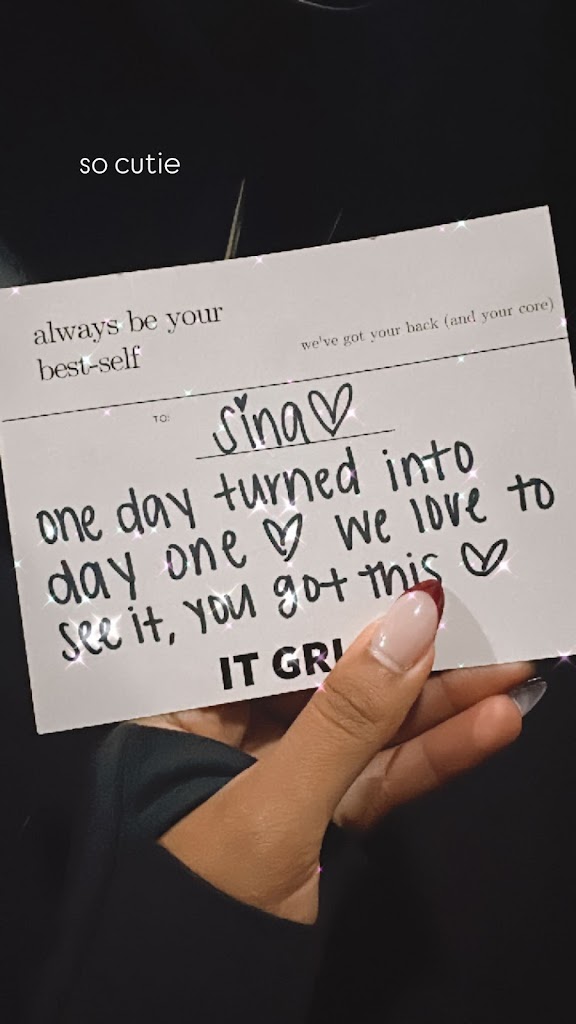 so cutie
always be your
best-self
we've got your back (and your core)
TO:
sina♡
one day turned into
day one ♡ we love to
see it, you got this ♡
IT GRL